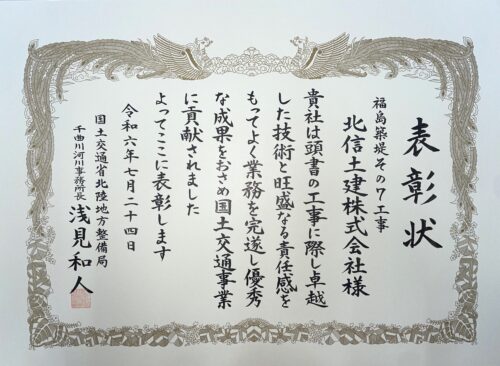 表彰状
福島築堤その7工事
北信土建株式会社様
貴社は頭書の工事に際し卓越
した技術と旺盛なる責任感を
もってよく業務を完遂し優秀
な成果をおさめ国土交通事業
に貢献されました
よってここに表彰します
令和六年七月二十四日
国土交通省北陸地方整備局
千曲川河川事務所長 浅見和人